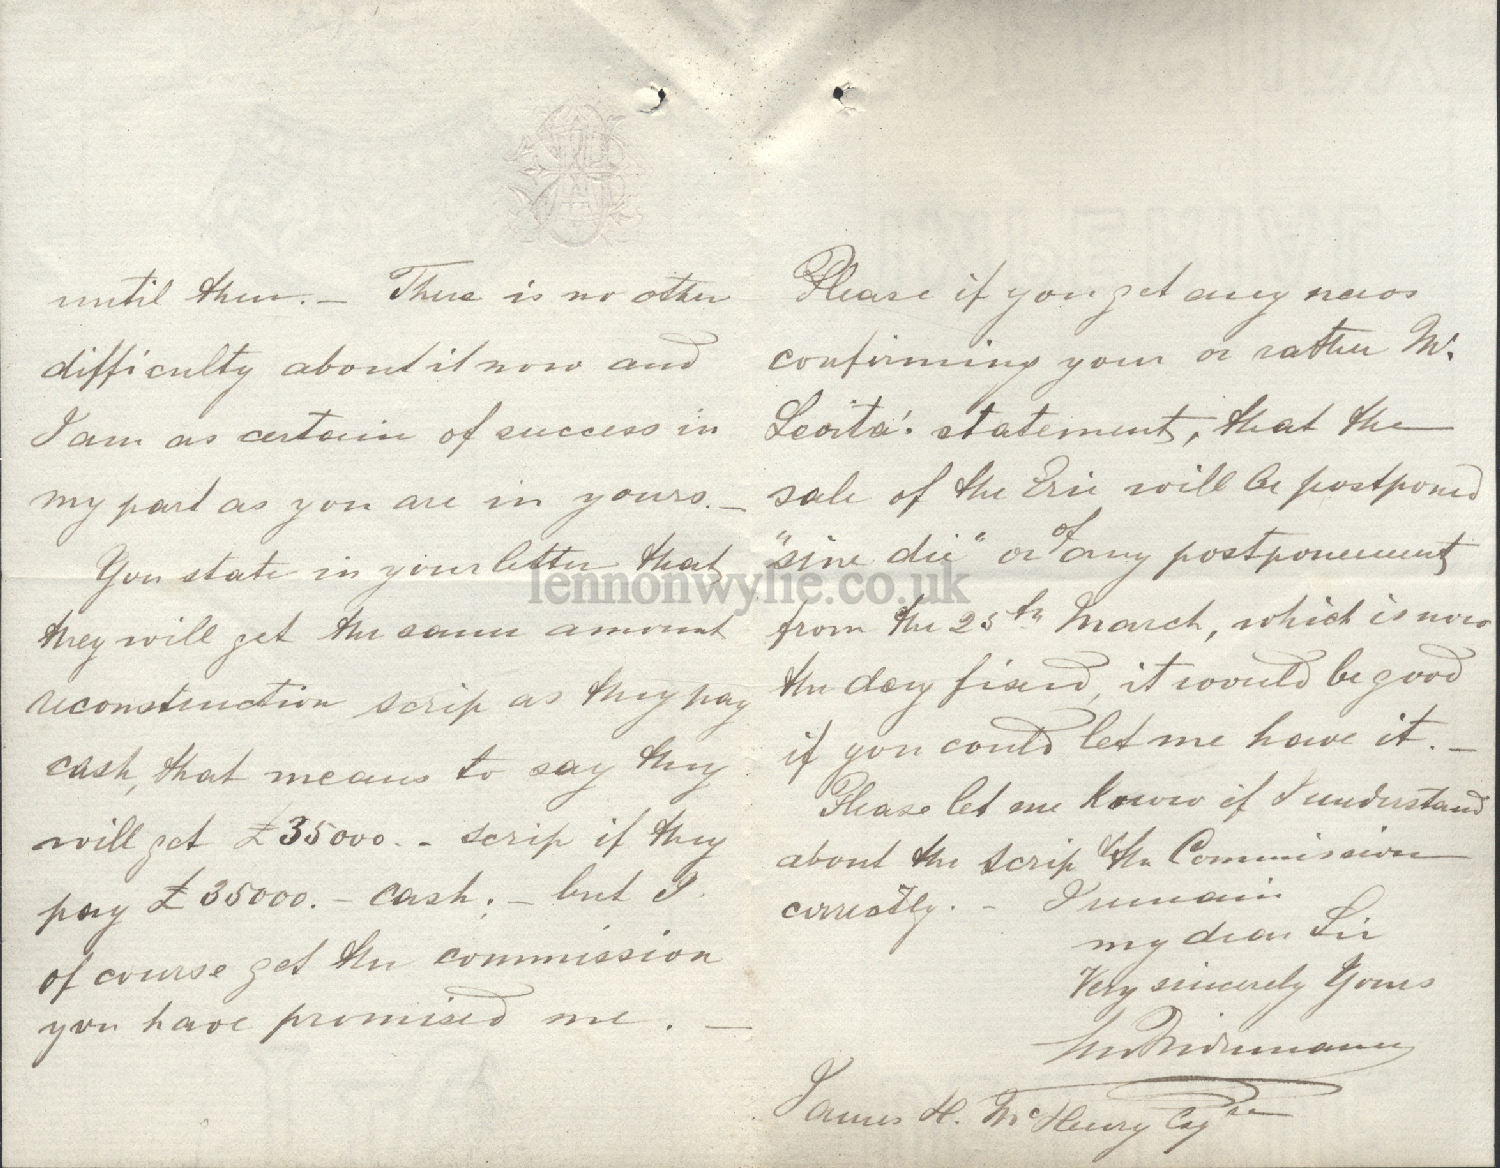 until then. — There is no other
difficulty about it now and
I am as certain of success in
my part as you are in yours. —
You state in your letter that
they will get the same amount
reconstruction scrip as they pay
cash, that means to say they
will get £35000. - scrip if they
pay £35000. - cash; - but I
of course get the commission
you have promised me. —
Please if you get any news
confirming your or rather Mr.
statement, that the
sale of the Erie will be postponed
"sine die" or of any postponement
from the 25th March, which is now
the day fixed, it would be good
if you could let me have it. —
Please let me know if I understand
about the scrip & the Commission
correctly. - I remain
my dear Sir
Very sincerely Yours
James H. McHenry Esqre
lennonwylie.co.uk